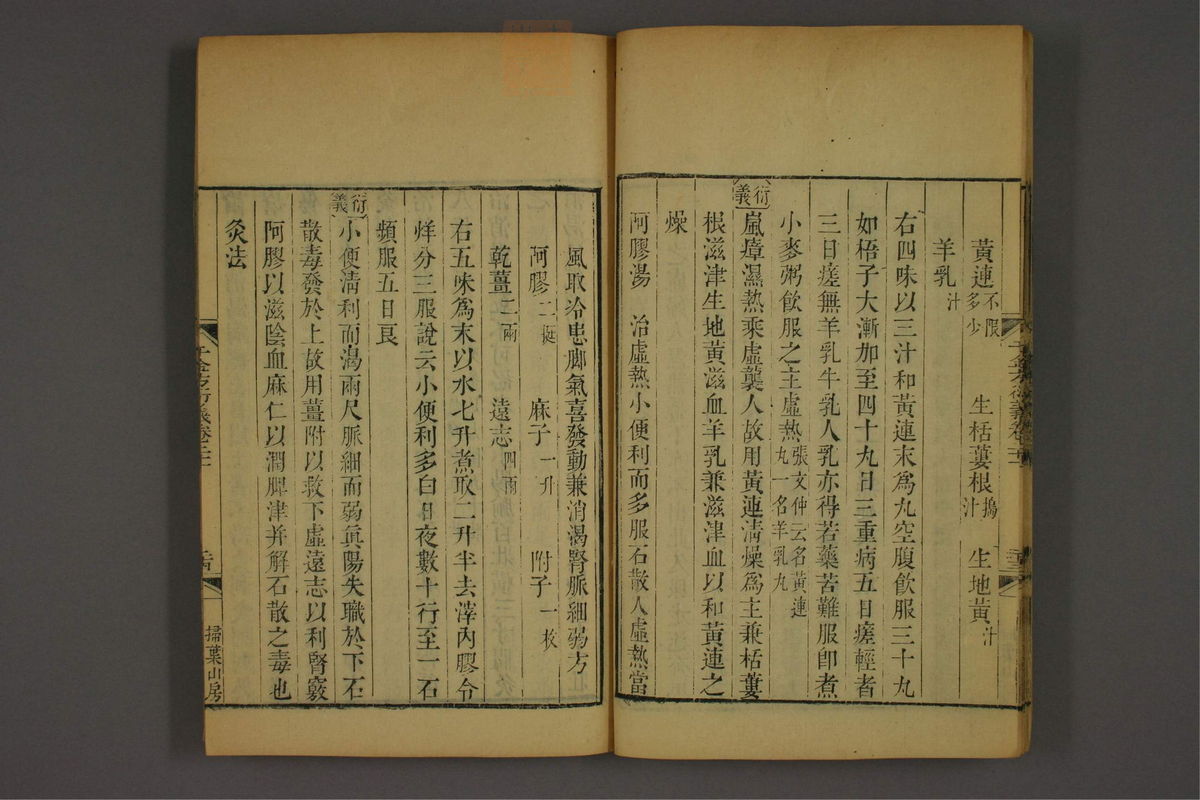 黃連不限多少 生栝蔞根搗汁 生地黃汁
羊乳汁
右四味以三汁和黃連末爲丸空腹飲服三十丸
如梧子大漸加至四十丸日三重病五日瘥輕者
三日瘥無羊乳牛乳人乳亦得若藥苦難服卽煮
小麥粥飲服之主虛熱張文仲云名黃連丸一名羊乳丸
衍義
嵐瘴濕熱乘虛襲人故用黃連淸燥爲主兼栝蔞
根滋津生地黃滋血羊乳兼滋津血以和黃連之
燥
阿膠湯 治虛熱小便利而多服石散人虛熱當
風取冷患脚氣喜發動兼消渴腎脈細弱方
阿膠二挺 麻子一升 附子一枚
乾薑二兩 遠志四兩
右五味爲末以水七升煮取二升半去滓內膠令
烊分三服說云小便利多白日夜數十行至一石
頻服五日良
衍義
小便淸利而渴兩尺脈細而弱眞陽失職於下石
散毒發於上故用薑附以救下虛遠志以利腎竅
阿膠以滋陰血麻仁以潤脾津并解石散之毒也
灸法
掃葉山房